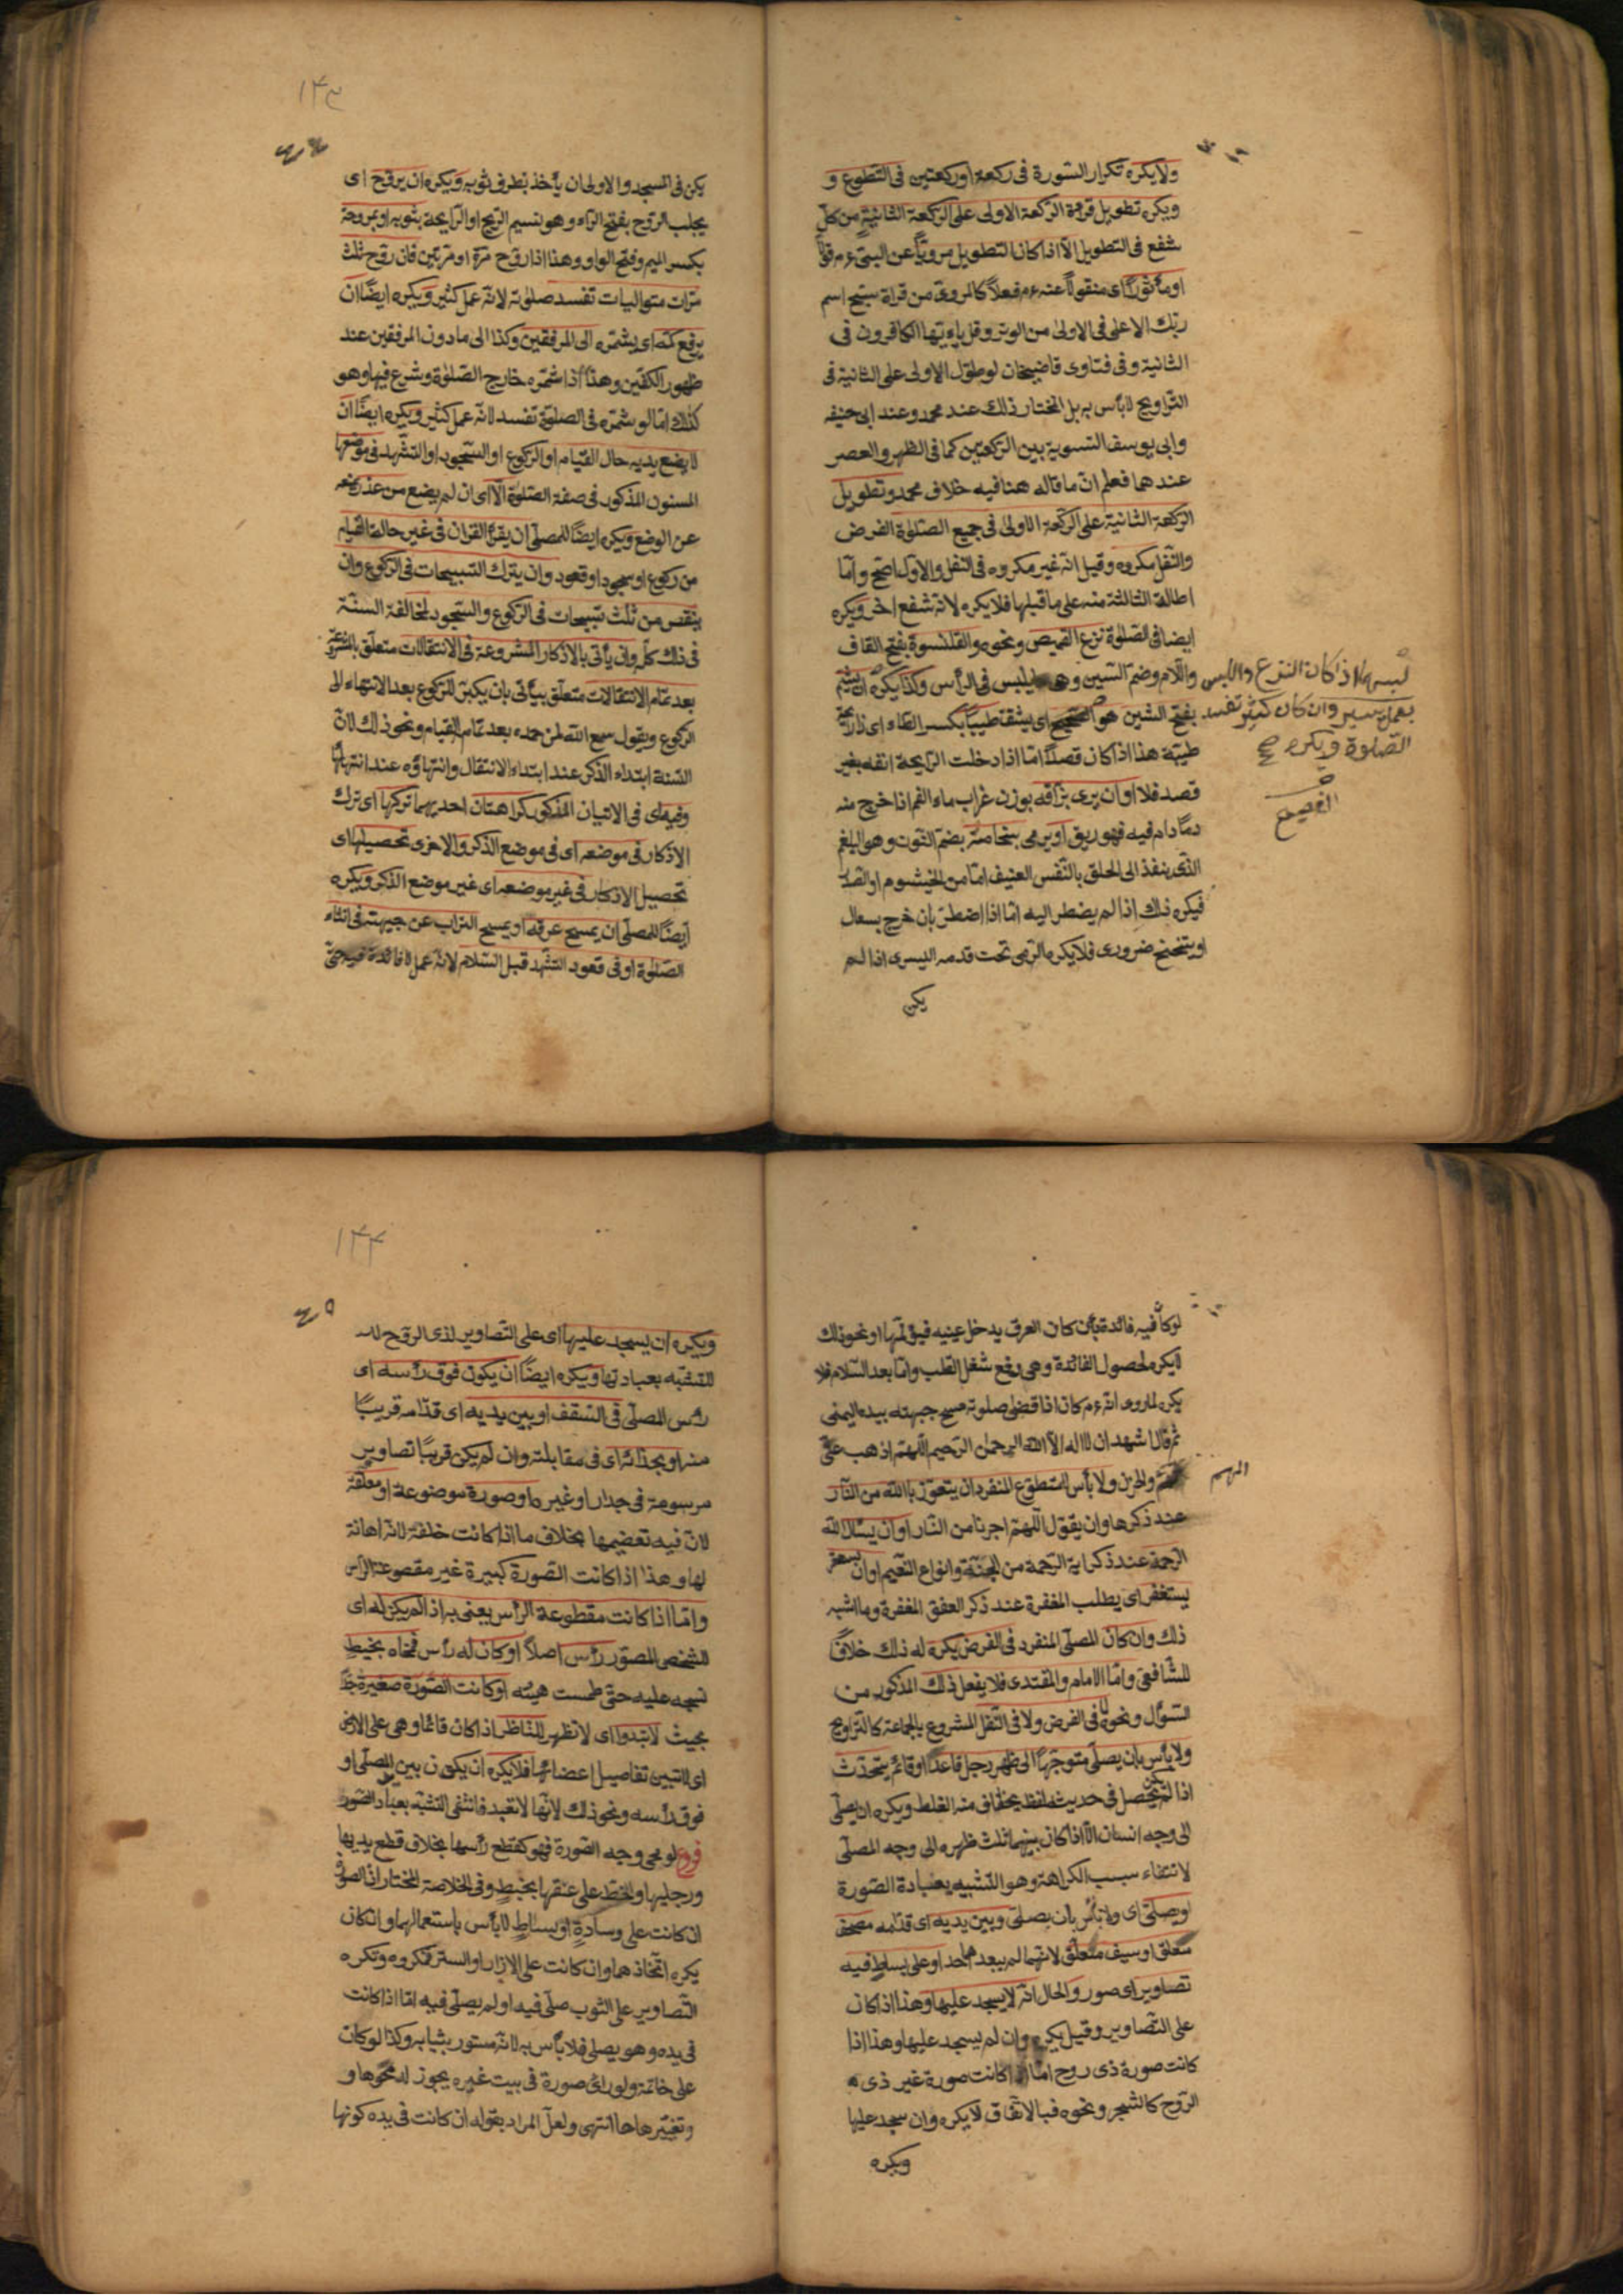 ولا يكره تكرار السورة فى ركعة او ركعتين فى التطوع و
ويكره تطويل قراءة الركعة الاولى على الركعة الثانية من كل
شفع فى التطويل الا اذا كان التطويل مرويا عن النبى ءم قولا
او مأثورا اى منقولا عنه ءم فعلا كالمروى من قراة سبح اسم
ربك الاعلى فى الاولى من الوتر وقل يا ايها الكافرون فى
الثانية وفى فتاوى قاضيخان لو طول الاولى على الثانية فى
التراويح لا بأس به بل المختار ذلك عند محمد وعند ابى حنيفه
وابى يوسف التسوية بين الركعتين كما فى الظهر والعصر
عندهما فعلم ان ما قاله هنا فيه خلاف محمد وتطويل
الركعة الثانية على الركعة الاولى فى جميع الصلوة الفرض
والنفل مكروه وقيل انه غير مكروه فى النفل والاول اصح واما
اطالة الثالثة منه على ما قبلها فلا يكره لانه شفع اخر ويكره
ايضا فى الصلوة نزع القميص ونحوه والقلنسوة بفتح القاف
واللام وضم السين وهى ما يلبس فى الرأس وكذا يكره ان يشم
بفتح الشين هو الصحيح اى يشق طيبا بكسر الطاء اى ذا رايحة
طيبة هذا اذا كان قصدا اما اذا دخلت الرايحة انفه بغير
قصد فلا او ان يرى بزاقه بوزن غراب ماء الفم اذا خرج منه
وما دام فيه فهو ريق او يرمى بنخامته بضم النون وهو البلغم
الذى ينفذ الى الحلق بالنفس العنيف اما من الخيشوم او الصدر
فيكره ذلك اذا لم يضطر اليه اما اذا اضطر بان خرج بسعال
او يتنحنح ضرورى فلا يكره الرمى تحت قدمه اليسرى اذا لم
يكن
لبسها اذا كان النزع واللبس
بعمل يسير وان كان كثير تفسد
الصلوة ويكره صح
الفصيح
١٤٣
يكن فى المسجد والاولى ان يأخذ بطرف ثوبه ويكره ان يروح اى
يجلب الروح بفتح الراء وهو نسيم الريح او الرايحة بثوبه او بمروحة
بكسر الميم وفتح الواو وهذا اذا روح مرة او مرتين فان روح ثلث
مرات متواليات تفسد صلوته لانه عمل كثير ويكره ايضا ان
يرفع كمه اى يشمره الى المرفقين وكذا الى ما دون المرفقين عند
ظهور الكفين وهذا اذا شمره خارج الصلوة وشرع فيها وهو
كذلك اما لو شمره فى الصلوة تفسد لانه عمل كثير ويكره ايضا ان
لا يضع يديه حال القيام او الركوع او السجود او التشهد فى موضعها
المسنون المذكور فى صفة الصلوة الا اى ان لم يضع من عذر يمنعه
عن الوضع ويكره ايضا للمصلى ان يقرأ القران فى غير حالة القيام
من ركوع او سجود او قعود وان يترك التسبيحات فى الركوع وان
ينقص من ثلث تسبيحات فى الركوع والسجود لمخالفة السنة
فى ذلك كله وان يأتى بالاذكار المشروعة فى الانتقالات متعلق بالمشروعة
بعد تمام الانتقالات متعلق بيأتى بان يكبر للركوع بعد الانتهاء الى
الركوع ويقول سمع الله لمن حمده بعد تمام القيام ونحو ذلك لان
السنة ابتداء الذكر عند ابتداء الانتقال وانتهاؤه عند انتهائها
وفيه اى فى الاتيان المذكور كراهتان احديهما تركها اى ترك
الاذكار فى موضعه اى فى موضع الذكر والاخرى تحصيلها اى
تحصيل الاذكار فى غير موضعه اى غير موضع الذكر ويكره
ايضا للمصلى ان يمسح عرقه او يمسح التراب عن جبهته فى اثناء
الصلوة او فى قعود التشهد قبل السلام لانه عمل لا فائدة فيه حتى
لو كان فيه فائدة بأن كان العرق يدخل عينيه فيؤلمها او نحو ذلك
لا يكره لحصول الفائدة وهى رفع شغل القلب واما بعد السلام فلا
يكره لما روى انه ءم كان اذا قضى صلوته مسح جبهته بيده اليمنى
ثم قال اشهد ان لا اله الا الله الرحمن الرحيم اللهم اذهب عنى
الهم والحزن ولا بأس للمتطوع المنفرد ان يتعوذ بالله من النار
الهم
عند ذكرها وان يقول اللهم اجرنا من النار او ان يسئل الله
الرحمة عند ذكر اية الرحمة من الجنة وانواع النعيم او ان
يستغفر اى يطلب المغفرة عند ذكر العفو المغفرة وما اشبه
ذلك وان كان المصلى المنفرد فى الفرض يكره له ذلك خلافا
للشافعى واما الامام والمقتدى فلا يفعل ذلك المذكور من
السؤال ونحوه لا فى الفرض ولا فى النفل المشروع بالجماعة كالتراويح
ولا بأس بان يصلى متوجها الى ظهر رجل قاعد او قائم يتحدث
اذا لم يحصل فى حديثه لفظ يخاف منه الغلط ويكره ان يصلى
الى وجه انسان الا اذا كان بينهما ثالث ظهره الى وجه المصلى
لانتفاء سبب الكراهة وهو التشبيه بعبادة الصورة
او يصلى اى ولا بأس بأن يصلى وبين يديه اى قدامه مصحف
معلق او سيف متعلق لانهما لم يعبدهما احد او على بساط فيه
تصاوير اى صور والحال انه لا يسجد عليها وهذا اذا كان
على التصاوير وقيل يكره وان لم يسجد عليها وهذا اذا
كانت صورة ذى روح اما اذا كانت صورة غير ذى
الروح كالشجر ونحوه فبالاتفاق لا يكره وان سجد عليها
ويكره
١٤٤
ويكره ان يسجد عليها اى على التصاوير لذى الروح
للتشبه بعبادتها ويكره ايضا ان يكون فوق رأسه اى
رأس المصلى فى السقف او بين يديه اى قدامه قريبا
منه او بحذائه اى فى مقابلته وان لم يكن قريبا تصاوير
مرسومة فى جدار او غيره او صورة موضوعة او معلقة
لان فيه تعضيمها بخلاف ما اذا كانت خلفه لانه اهانة
لها وهذا اذا كانت الصورة كبيرة غير مقطوعة الرأس
واما اذا كانت مقطوعة الرأس يعنى به اذا لم يكن له اى
الشخص المصور رأس اصلا او كان له رأس فمحاه بخيط
نسجه عليه حتى طمست هيئته او كانت الصورة صغيرة جدا
بحيث لا تبدوا اى لا تظهر للناظر اذا كان قائما وهى على الارض
اى لا تتبين تفاصيل اعضائها فلا يكره ان يكون بين المصلى او
فوق رأسه ونحو ذلك لانها لا تعبد فانتفى التشبه بعباد الصور
فرع لو محى وجه الصورة فهو كقطع رأسها بخلاف قطع يديها
ورجليها والخط على عنقها بخيط وفى الخلاصة المختار ان الصورة
ان كانت على وسادة او بساط لا بأس باستعمالها وان كان
يكره اتخاذهما وان كانت على الازار او الستر فمكروه وتكره
التصاوير على الثوب صلى فيه او لم يصلى فيه اما اذا كانت
فى يده وهو يصلى فلا بأس به لانه مستور بثيابه وكذا لو كان
على خاتمه ولو رأى صورة فى بيت غيره يجوز له محوها و
وتغييرها انتهى ولعل المراد بقوله ان كانت فى يده كونها